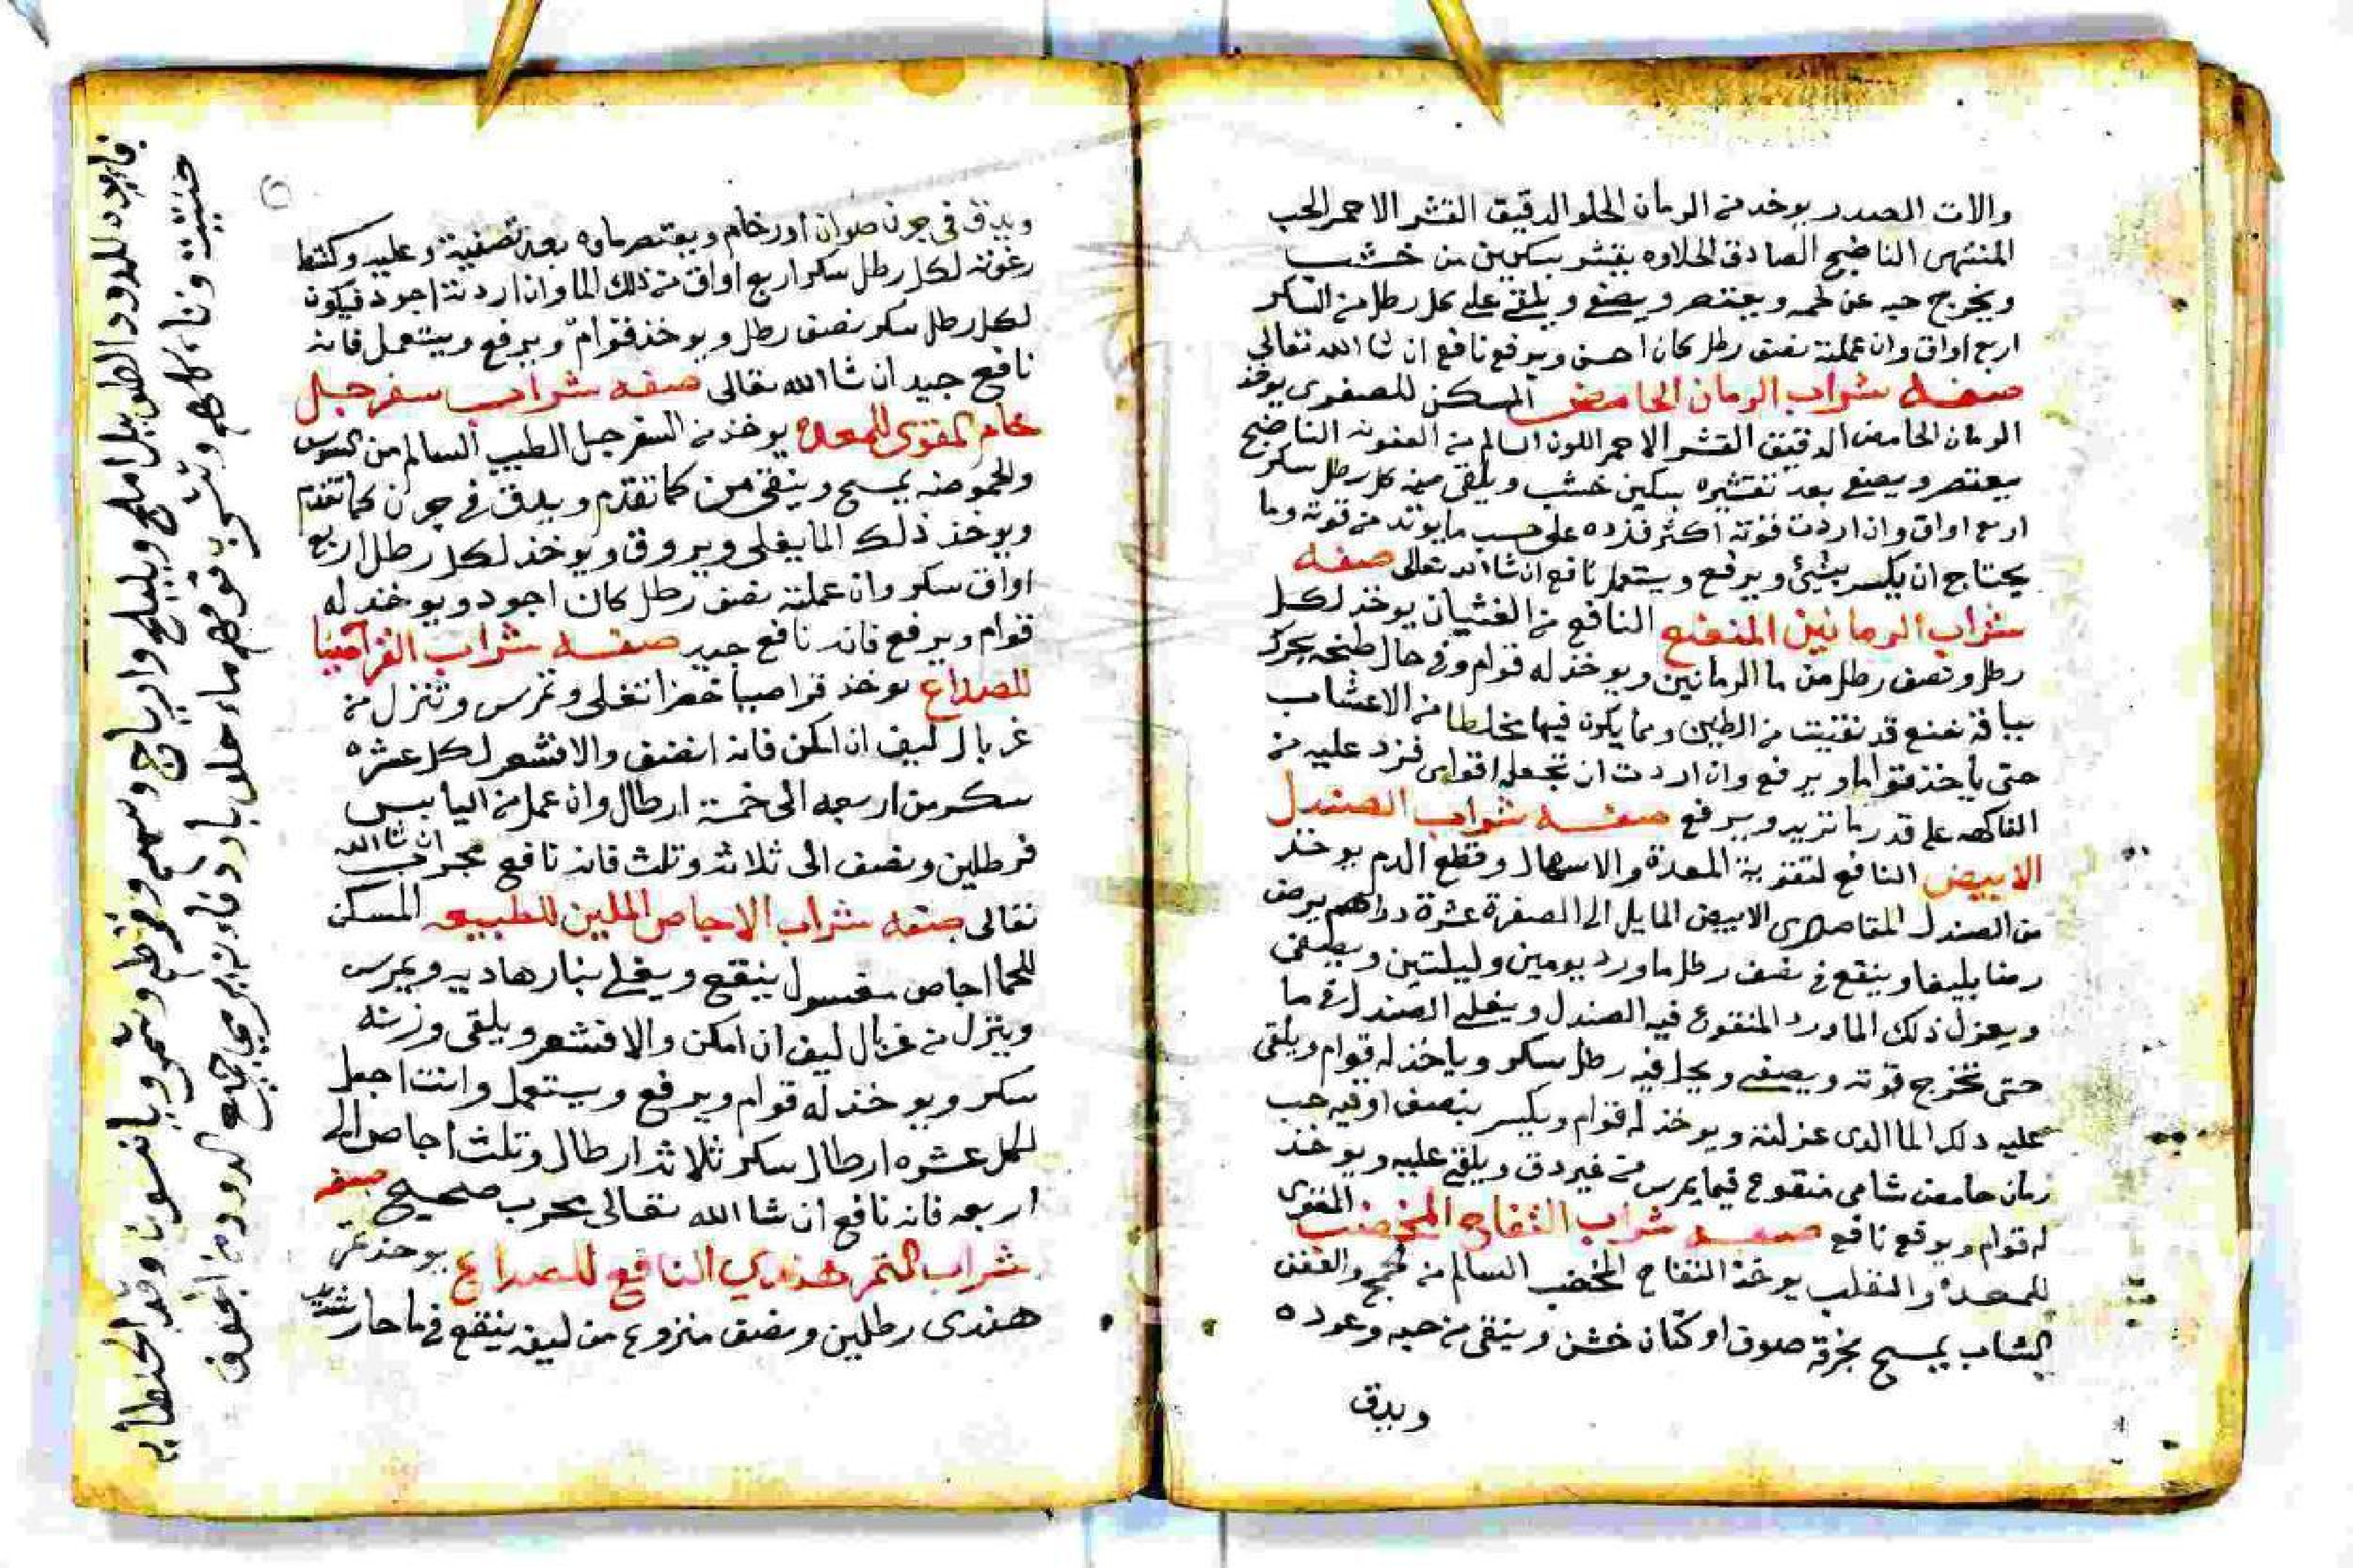 والات الصدر يوخد من الرمان الحلو الدقيق القشر الاحمر الحب
المنتهى الناضج الصادق الحلاوه يقشر بسكين من خشب
ويخرج حبه عن لحمه ويعتصر ويصفى ويلقى على كل رطل من السكر
اربع اواق وان عملته نصف رطل كان احسن ويرفع نافع ان شا الله تعالى
صفه شراب الرمان الحامض المسكن للصفرى يوخذ
الرمان الحامض الدقيق القشر الاحمر اللون السالم من العفونه الناضج
يعتصر ويصفى بعد تقشيره بسكين خشب ويلقى منه كل رطل سكر
اربع اواق وان اردت قوته اكثر فزده على حسب ما يوتد من قوته وما
يحتاج ان يكسر بشئ ويرفع ويستعمل نافع ان شا الله تعالى صفه
شراب الرمانين المنعنع النافع من الغثيان يوخذ لكل
رطل ونصف رطل من ما الرمانين ويوخذ له قوام وفى حال طبخه يحرك
بباقة نعنع قد نقيت من الطين ومما يكون فيها مختلطا من الاعشاب
حتى ياخذ قواما ويرفع وان اردت ان تجعله اقوامى فزد عليه من
الفاكهه على قدر ما تريد ويرفع صفه شراب الصندل
الابيض النافع لتقوية المعدة والاسهال وقطع الدم يوخذ
من الصندل المقاصرى الابيض المايل الى الصفرة عشرة دراهم يرض
رضا بليغا وينقع فى نصف رطل ماورد يومين وليلتين ويصفى
ويعزل ذلك الماورد المنقوع فيه الصندل ويغلى الصندل فى ما
حتى تخرج قوته ويصفى ويحل فيه رطل سكر وياخذ له قوام ويلقى
عليه دلك الما الدى عزلته ويوخذ له قوام ويكسر بنصف اوقيه حب
رمان حامض شامى منقوع فيما يمرس من غير دق ويلقى عليه ويوخذ
له قوام ويرفع نافع صفه شراب التفاح المخضب المقوى
للمعدة والقلب يوخذ التفاح المخضب السالم من والعفن
الشاب يمسح بخرقة صوف او كتان خشن وينقى من حبه وعوده
ويدق
ويدق فى جرن صوان اورخام ويعتصر ماوه بعد تصفيته وعليه وكشط
رغوته لكل رطل سكر اربع اواق من ذلك الما وان اردته اجود فيكون
لكل رطل سكر نصف رطل ويوخذ قوام ويرفع ويستعمل فانه
نافع جيد ان شا الله تعالى صفه شراب سفرجل
خام المقوى للمعدة يوخذ من السفرجل الطيب السالم من السوس
والحموضه يمسح وينقى من كما تقدم ويدق فى جرن كما تقدم
ويوخذ ذلك الما يغلى ويروق ويوخذ لكل رطل اربع
اواق سكر وان عملته نصف رطل كان اجود ويوخذ له
قوام ويرفع فانه نافع جيد صفه شراب القراصيا
للصداع يوخذ قراصيا خضرا تغلى وتمرس وتنزل من
غربال ليف ان امكن فانه انضف والا فشعر لكل عشره
سكر من اربعه الى خمسة ارطال وان عمل من اليابس
فرطلين ونصف الى ثلاثه وتلث فانه نافع مجرب ان شا الله
تعالى صفه شراب الاجاص الملين للطبيعه المسكن
للحما اجاص مغسول ينقع ويغلى بنار هاديه ويمرس
وينزل من غربال ليف ان امكن والا فشعر ويلقى وزنه
سكر ويوخذ له قوام ويرفع ويستعمل وانت اجعل
لكل عشره ارطال سكر ثلاثه ارطال وتلث اجاص الى
اربعه فانه نافع ان شا الله تعالى مجرب صحيح صفه
شراب التمر هندي النافع للصداع يوخد تمر
هندى رطلين ونصف منزوع من ليفه ينقع فى ما حار شديد
فايده للدود الطويل املج وبليلج واريباج وسمسم وقرظ وشمر ويانسون وقدر الحنضل
حنتيت ونناء كلهم وتشرب فوقهم ماء حلو بارد فانه يرمى جميع الدود من الجوف